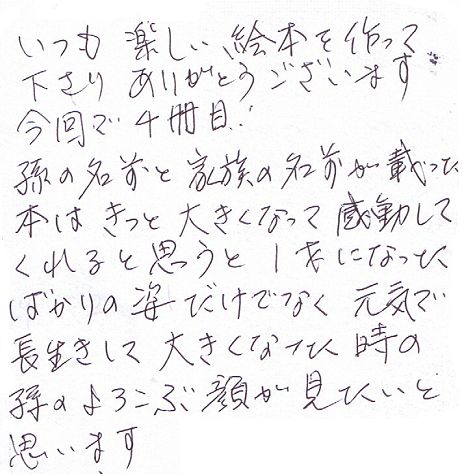 いつも 楽しい 絵本を作って
下さり ありがとうございます
今回で 4冊目!
孫の名前と 家族の名前が載った
本は きっと 大きくなって 感動して
くれると思うと 1才になった
ばかりの姿だけでなく 元気で
長生きして 大きくなった 時の
孫のよろこぶ顔が見たいと
思います